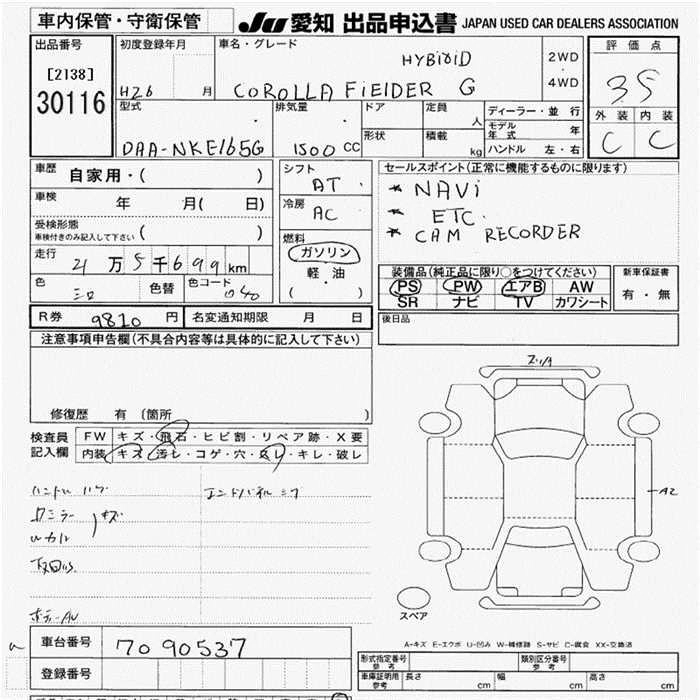 車内保管・守衛保管
JU 愛知 出品申込書 JAPAN USED CAR DEALERS ASSOCIATION
出品番号
[2138]
30116
初度登録年月
H26 月
車名・グレード
HYBiRiD
COROLLA FiElDER G
2WD
・
4WD
評価点
3.5
外装 内装
C C
型式
DAA-NKE165G
排気量
1500 CC
ドア
形状
定員
人
積載
kg
ディーラー・並行
モデル年式 年
ハンドル 左・右
車歴 自家用・( )
車検 年 月( 日)
受検形態
車検付きのみ記入して下さい ( )
走行 21万5千699km
色 色替 色コード 040
シフト
AT
冷房
AC
燃料
ガソリン
軽・油
( )
セールスポイント(正常に機能するものに限ります)
* NAVi
* ETC.
* CAM RECORDER
装備品(純正品に限り○をつけてください)
PS PW エアB AW
SR ナビ TV カワシート
新車保証書
有・無
R券 9820 円 名変通知期限 月 日
後日品
注意事項申告欄(不具合内容等は具体的に記入して下さい)
修復歴 有 (箇所 )
検査員
記入欄
FW キズ・飛石・ヒビ割・リペア跡・X要
内装 キズ・汚レ・コゲ・穴・スレ・キレ・破レ
ハンドル ハゲ エンドパネル
キズ
A2
スペア
A-キズ E-エクボ U-凹み W-補修跡 S-サビ C-腐食 XX-交換済
車台番号 7090537
登録番号
形式指定番号
参考
類別区分番号
参考
車庫証明用
参考
長さ cm 幅 cm 高さ cm